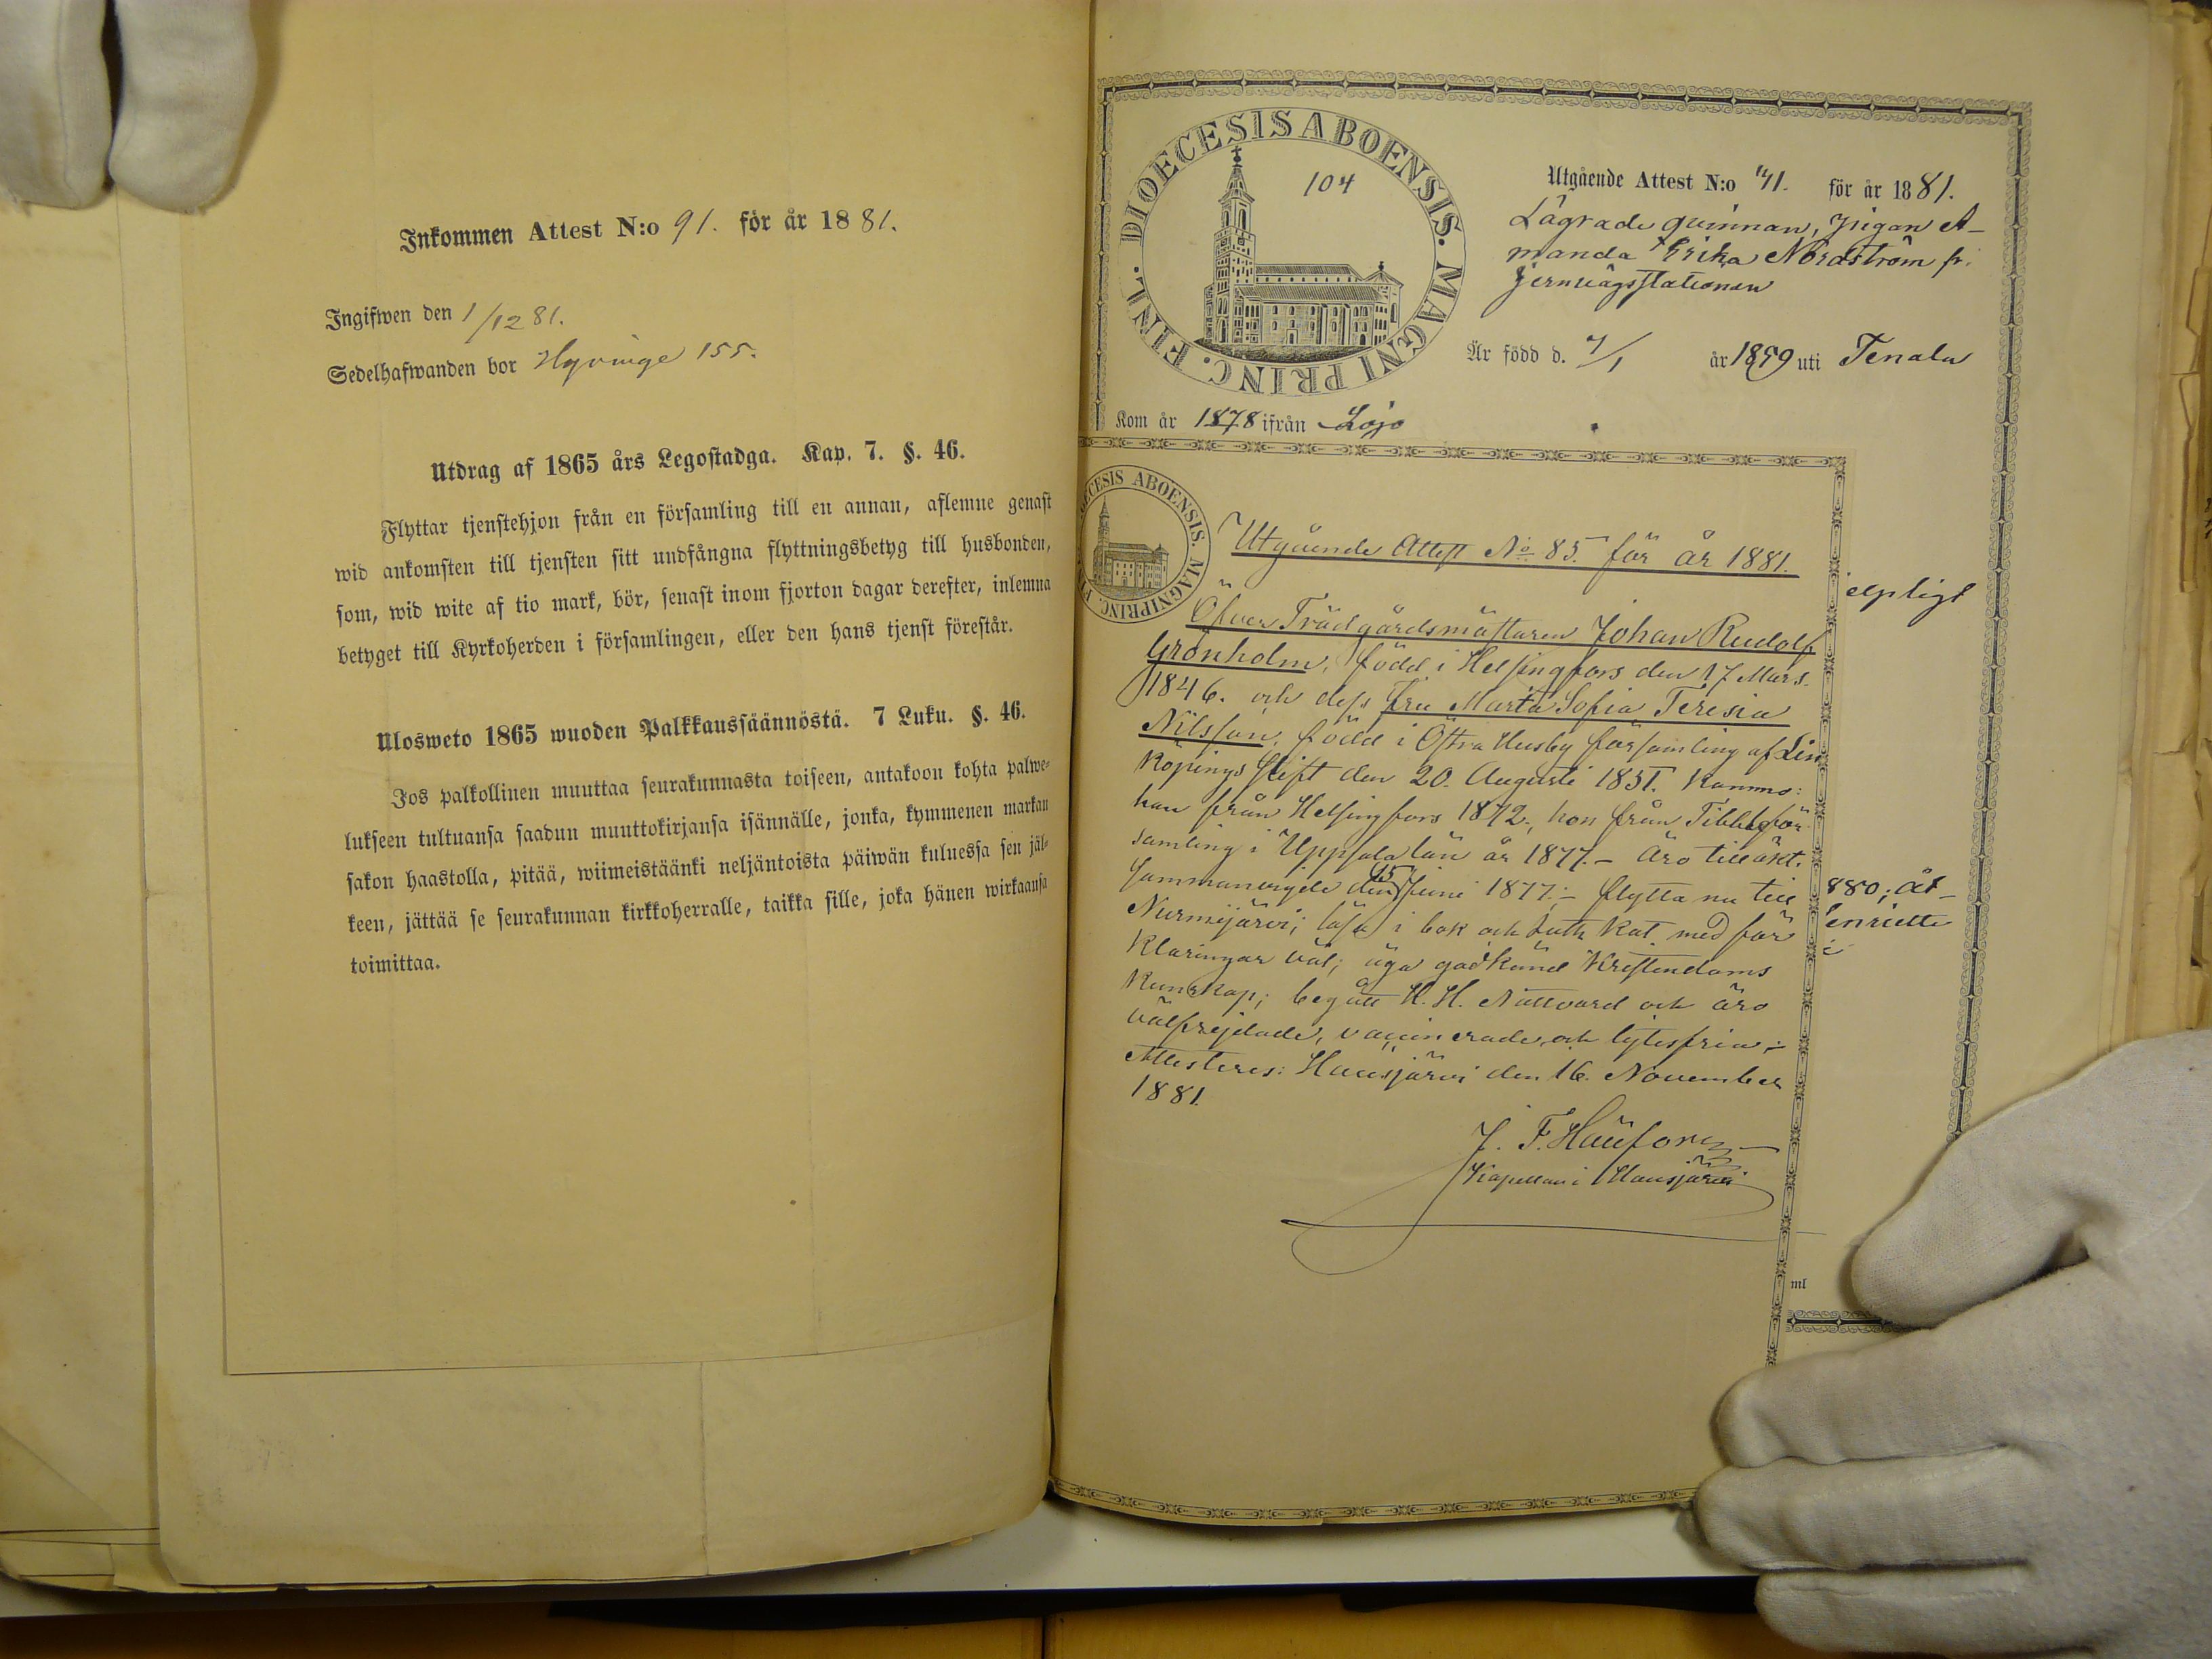 Inkommen Attest N:o 91. för år 1881.
Ingifwen den 1/12 81.
Sedelhafwanden bor Hyvinge 155.
Utdrag af 1865 års Legostadga. Kap. 7. §. 46.
Flyttar tjenstehjon från en församling till en annan, aflemne genast
wid ankomsten till tjensten sitt undfångna flyttningsbetyg till husbonden,
som, wid wite af tio mark, bör, senast inom fjorton dagar derefter, inlemna
betyget till Kyrkoherden i församlingen, eller den hans tjenst förestår.
Ulosweto 1865 wuoden Palkkaussäännöstä. 7 Luku. §. 46.
Jos palkollinen muuttaa seurakunnasta toiseen, antakoon kohta palwe-
lukseen tultuansa saadun muuttokirjansa isännälle, jonka, kymmenen markan
sakon haastolla, pitää, wiimeistäänki neljäntoista päiwän kuluessa sen jäl-
keen, jättää se seurakunnan kirkkoherralle, taikka sille, joka hänen wirkaansa
toimittaa.
DIOECESIS ABOENSIS. MAGNI PRINC. FINL.
104
Utgående Attest N:o 41. för år 1881.
Lägrade qvinnan, pigan A-
manda Erika Nordström fr.
Jernvägsstationen
Är född d. 4/1 år 1859 uti Tenala
Kom år 1878 ifrån Lojo
DIOECESIS ABOENSIS. MAGNI PRINC. F
Utgående Attest No 85. för år 1881.
Öfver Trädgårdsmästaren Johan Rudolf
Grönholm, född i Helsingfors den 17 Mars
1846. och dess fru Marta Sofia Teresia
Nilsson, född i Östra Husby församling af Lin
köpings stift den 20. Augusti 1851. Kommo:
han från Helsingfors 1872., hon från Tibble för
samling i Uppsala län år 1877.- Äro till äkt.
sammanvigde den 15 Juni 1877;- flytta nu till
Nurmijärvi; läsa i bok och Luth. Kat. med för
klaringar väl; äga godkänd Kristendoms
kunskap; begått H. H. Nattvard och äro
välfrejdade, vaccinerade och lytesfria;-
Attesteres: Hausjärvi den 16. November
1881.
J. F.
Kapellan i Hausjärvi
880; ät-
enriette
i
ml